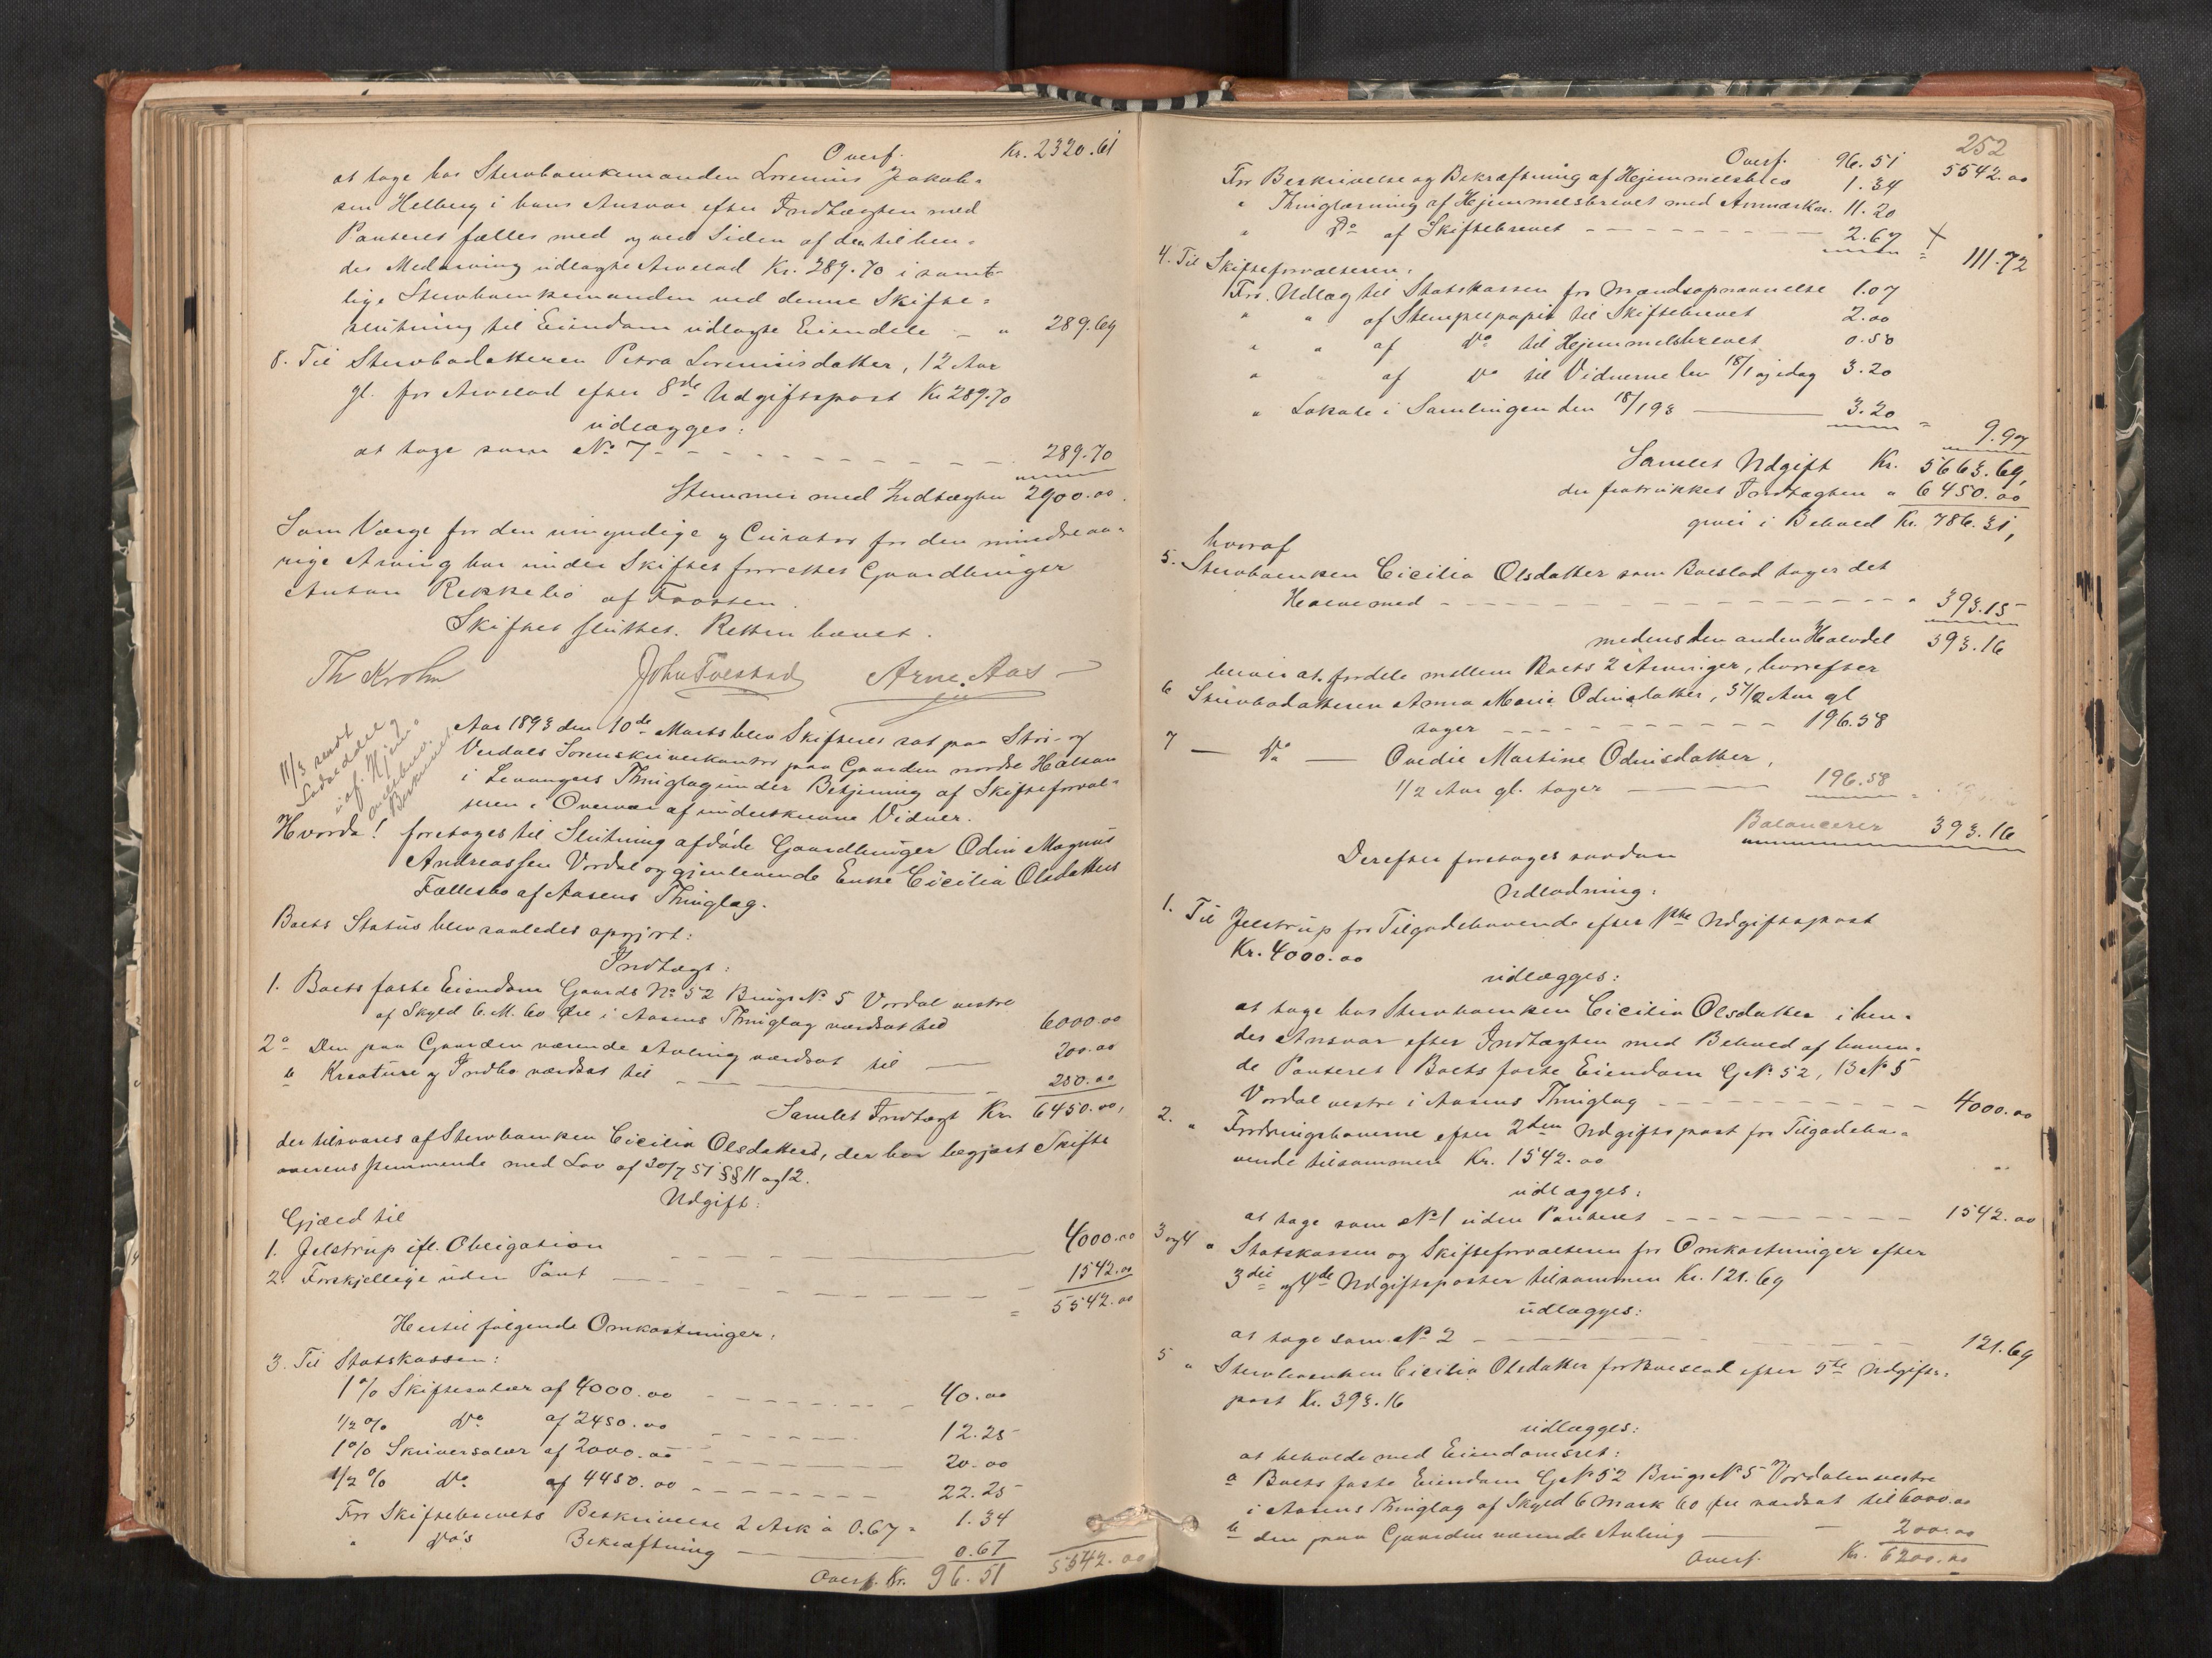 Overf. Kr. 2320.61
at tage hos Stervboenkemanden Lorenius Jakob-
sen Helberg i hans Ansvar efter Indtægten med
Panteret fælles med og ved Siden af den til hen-
des Medarving udlagte Arvelod Kr. 289.70 i samt-
lige Stervboenkemanden ved denne Skifte-
slutning til Eiendom udlagte Eiendele - " 289.69
8. Til Stervbodatteren Petra Loreniusdatter, 12 Aar
gl. for Arvelod efter 8de Udgiftspost Kr 289.70
udlægges:
at tage som No 7 - - - 289.70
Stemmer med Indtægten 2900.00.
Som Værge for den umyndige og Curator for den mindreaa-
rige Arving har under Skiftet forrettet Gaardbruger
Anton Rekkebo af Frosten.
Skiftet sluttet. Retten hævet.
Th Krohn John Tvestad Arne Aas
11/3 sendt
Lodseddel
af Hjem-
Aar 1893 den 10de Marts blev Skifteret sat paa Stør- og
Verdals Sorenskriverkontor paa Gaarden nordre Halsan
i Levangers Thinglag under Betjening af Skifteforval-
teren i Overvær af underskrevne Vidner.
Hvorda! foretoges til Slutning afdøde Gaardbruger Odin Magnus
Andreassen Vordal og gjenlevende Enke Cicilia Olsdatters
Fællesbo af Aasens Thinglag.
Boets Status blev saaledes opgjort:
Indtægt:
1. Boets faste Eiendom Gaards No 52 Brugs No 5 Vordal vestre
af Skyld 6. M. 60 Øre i Aasens Thinglag værdsat ted 6000.00
2 a Den paa Gaarden værende Avling værdsat til — 200.00
b Kreature og Indbo værdsat til - — 250.00
Samlet Indtægt Kr. 6450.00,
der tilsvares af Stervboenken Cicilia Olsdatters, der har begjært Skifte
overensstemmende med Lov af 30/7 51 §§ 11 og 12.
Udgift:
Gjæld til
1. Jelstrup ifl. Obligation — 4000.00
2. Forskjellige uden Pant — 1542.00
= 5542.00
Hertil følgende Omkostninger:
3. Til Statskassen:
1% Skiftesalær af 4000.00 - - - 40.00
1/2% Do af 2450.00 - - - 12.25
1% Skriversalær af 2000.00 - - - 20.00
1/2% do. af 4450.00 - - - 22.25
For Skiftebrevets Beskrivelse 2 Ark à 0.67 = 1.34
" Do's Bekræftning — 0.67
Overf. Kr. 96.51 5542.00
252
Overf. 96.51 5542.00
For Beskrivelse og Bekræftning af Hjemmelsbrev 1.34
" Thinglæsning af Hjemmelsbrevet med Anmærkn. 11.20
" Do af Skiftebrevet - - - 2.67 = 111.72
4. Til Skifteforvalteren:
For Udlæg til Statskassen for Mændsopnævnelse 1.07
" " af Stempelpapir til Skiftebrevet 2.00
" " af Do til Hjemmelsbrevet 0.50
" " af Do til Vidnerne den 18/1 og idag 3.20
" Lokale i Samlingen den 18/1 93 — 3.20 = 9.97
Samlet Udgift Kr. 5663.69,
der fratrukket Indtægten " 6450.00
giver i Behold Kr. 786.31,
hvoraf
5. Stervboenken Cicilia Olsdatter som Boeslod tager det
Halve med - - - " 393.15
medens den anden Halvdel 393.16
bliver at fordele mellem Boets 2 Arvinger, hvorefter
6 Stervbodatteren Anna Marie Odinsdatter, 5 1/2 Aar gl
tager - - - 196.58
7 — Do — Ovedie Martine Odinsdatter,
1/2 Aar gl. tager — 196.58
Balancerer 393.16
Derefter foretoges saadan
Udlodning:
1. Til Jelstrup for Tilgodehavende efter 1ste Udgiftspost
Kr. 4000.00
udlægges:
at tage hos Stervboenken Cicilia Olsdatter i hen-
des Ansvar efter Indtægten med Behold af haven-
de Panteret i Boets faste Eiendom G No 52, B No 5
Vordal vestre i Aasens Thinglag - - - 4000.00
2. " Fordringshaverne efter 2den Udgiftspost for Tilgodeha-
vende tilsammen Kr. 1542.00
udlægges:
at tage som No 1 uden Panteret - - - 1542.00
3 og 4 " Statskassen og Skifteforvalteren for Omkostninger efter
3die og 4de Udgiftsposter tilsammen Kr. 121.69
udlægges:
at tage som No 2 - - - 121.69
5 " Stervboenken Cicilia Olsdatter for Boeslod efter 5te Udgifts-
post Kr. 393.16
udlægges:
at beholde med Eiendomsret:
a Boets faste Eiendom G No 52 Brugs No 5 Vordalen vestre
i Aasens Thinglag af Skyld 6 Mark 60 Øre værdsat til 6000.00
b den paa Gaarden værende Avling — 200.00
Overf. Kr. 6200.00